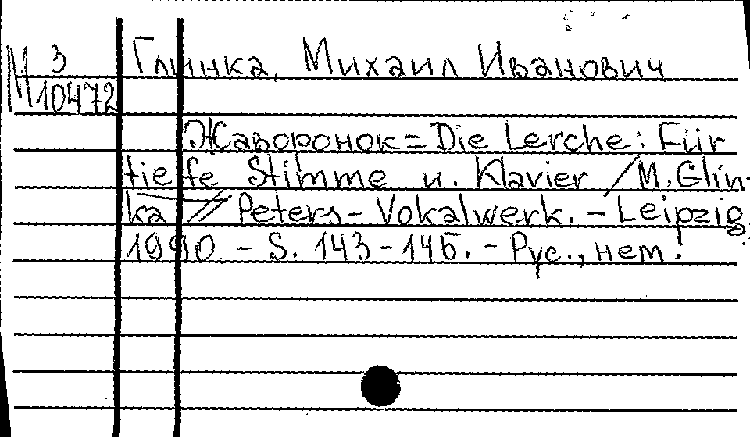 М 3 Глинка, Михаил Иванович
10472
Жаворонок = Die Lerche : Für
tiefe Stimme u. Klavier / M. Glin-
ka // Peters - Vokalwerk. - Leipzig,
1990 - S. 143-145. - Рус., нем.